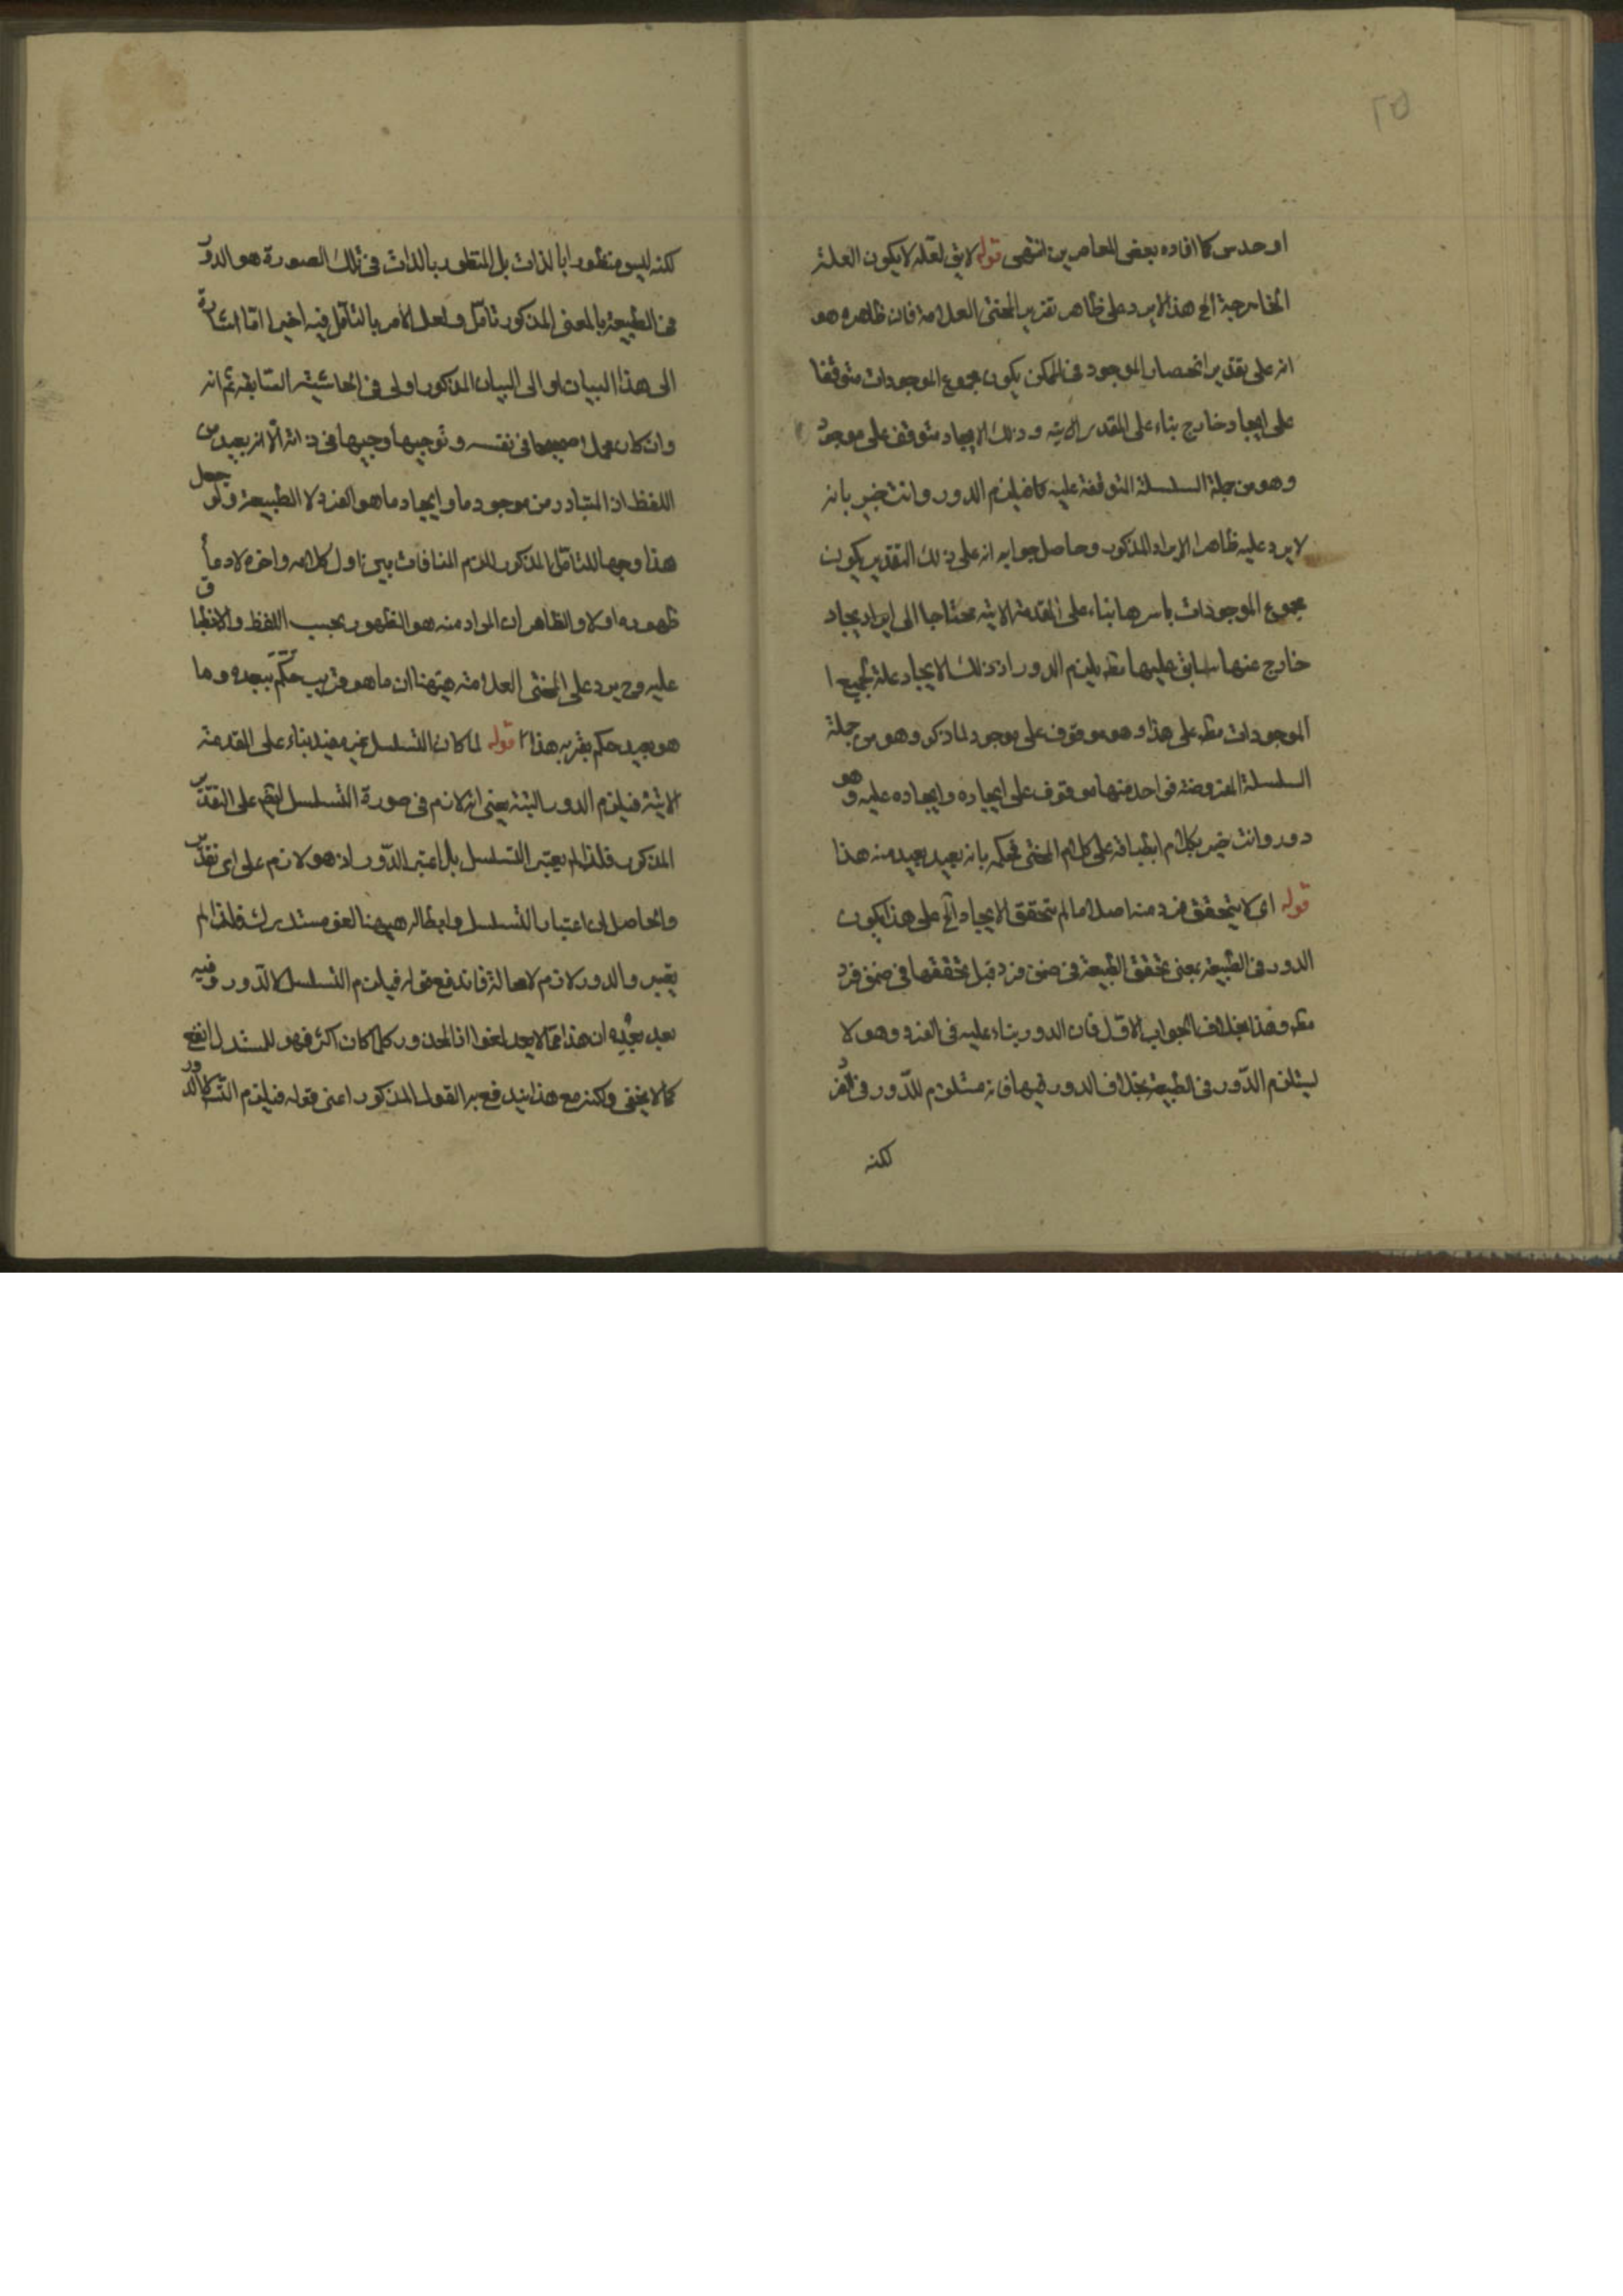 ٢٥
او حدس كما افاده بعض المعاصرين انتهى قوله لا يق لعله لا يكون العلة
الخارجية الخ هذا لا يرد على ظاهر تقرير المحشى العلامة فان ظاهره هو
انه على تقدير انحصار الموجود فى الممكن يكون مجموع الموجودات متوقفا
على ايجاد خارج بناء على المقدمة الاتية وذلك الايجاد متوقف على موجود
وهو من جملة السلسلة المتوقفة عليه فيلزم الدور وانت خبير بانه
لا يرد عليه ظاهرا الايراد المذكور وحاصل جوابه انه على ذلك التقدير يكون
مجموع الموجودات باسرها بناء على المقدمة الاتية محتاجا الى ايجاد
خارج عنها سابق عليها فقط يلزم الدور اذ ذلك الايجاد علة لجميع
الموجودات على هذا وهو موقوف على موجود لما ذكر وهو من جملة
السلسلة المفروضة فى احد منها موقوف على ايجاده وايجاده عليه وهو
دور وانت خبير بكلام انطباقه على كلام المحشى تحكم بانه بعيد بعيد منه هذا
قوله اى لا يتحقق فرد منه اصلا ما لم يتحقق الايجاد الخ على هذا يكون
الدور فى الطبيعة بمعنى تحقق الطبيعة فى ضمن فرد قبل تحققها فى ضمن فرد
وهذا بخلاف الجواب الاول فان الدور بناء عليه فى الفرد وهو لا
يستلزم الدور فى الطبيعة بخلاف الدور فيها فانه مستلزم للدور فى الفرد
لكنه
لكنه ليس منظورا بالذات بل المنظور بالذات فى تلك الصورة هو الدور
فى الطبيعة بالمعنى المذكور تامل ولعل الأمر بالتأمل فيه اخيرا اما اشارة
الى هذا البيان او الى البيان المذكور اولى فى الحاشية السابقة ثم انه
وان كان صحيحا فى نفسه وتوجيها وجيها فى ذاته الا انه بعيد من
اللفظ اذ المتبادر من موجود ما وايجاد ما هو الفرد لا الطبيعة ولو جعل
هذا وجها للتامل المذكور للزم المنافات بين اول كلامه واخره لادعاء
ظهوره اولا والظاهر ان المراد منه هو الظهور بحسب اللفظ والانطباق
عليه وح يرد على المحشى العلامة هيهنا ان ما هو قريب حكم ببعده وما
هو بعيد حكم بقربه هذا قوله لما كان التسلسل غير مفيد بناء على المقدمة
الاتية فيلزم الدور البتة يعنى انه لازم فى صورة التسلسل ايضا على التقدير
المذكور فلذا لم يعتبر التسلسل بل اعتبر الدور اذ هو لازم على اى تقدير
والحاصل ان اعتبار التسلسل وابطاله هيهنا لغو مستدرك فلذا لم
يعتبر والدور لازم لا محالة فاندفع قوله فيلزم التسلسل لا الدور وفيه
بعد بعيد ان هذا مما لا يجدى نفعا اذ المحذور كلما كان اكثر فهو للمستدل انفع
كما لا يخفى ولكنه مع هذا يندفع به القول المذكور اعنى قوله فيلزم التسلسل لا الدور